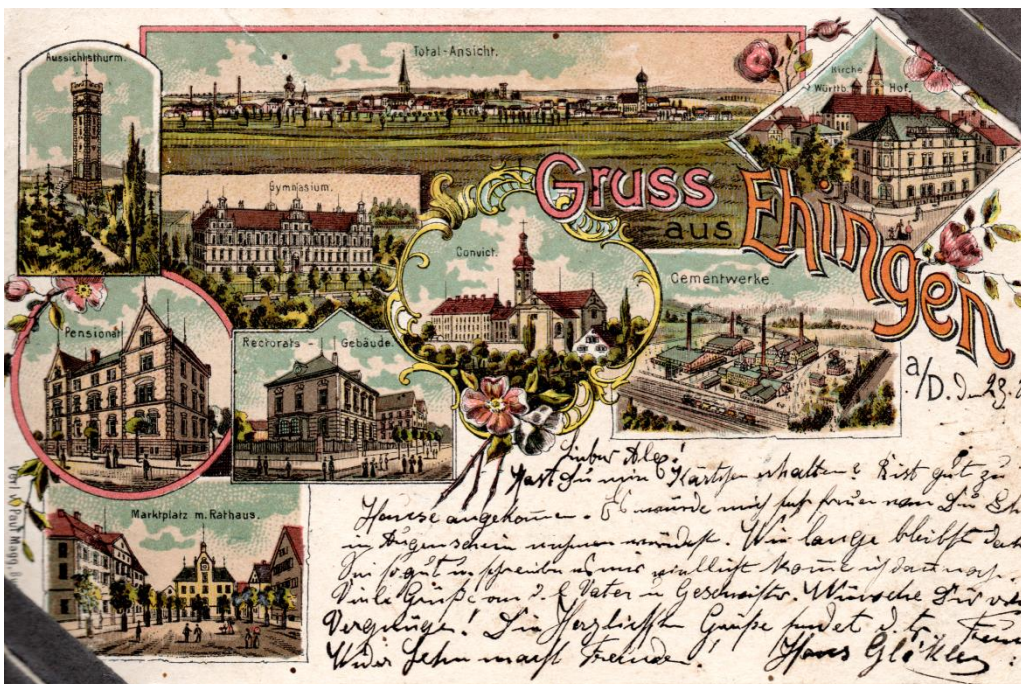 Aussichtsthurm.
Total-Ansicht.
Kirche
Württb. Hof.
Gymnasium.
Gruss
aus
Ehingen
Convict.
Cementwerke
Pensionat
Rectorats-Gebäude.
a/D. d. 23.
Marktplatz m. Rathaus.
Verl. v. Paul Magg.
Hast Du mein Kärtchen erhalten? Bist gut zu
Hause angekommen. Es würde mich sehr freuen wenn Du
in Augenschein nehmen würdest. Wie lange bleibst
Sei so gut u. schreibe es mir vielleicht komme ich dann noch.
Viele Grüße an d. l. Vater u. Geschwister. Wünsche Dir
Vergnügen! Die Herzlichsten Grüße sendet
Wieder Sehn macht Freude! Hans